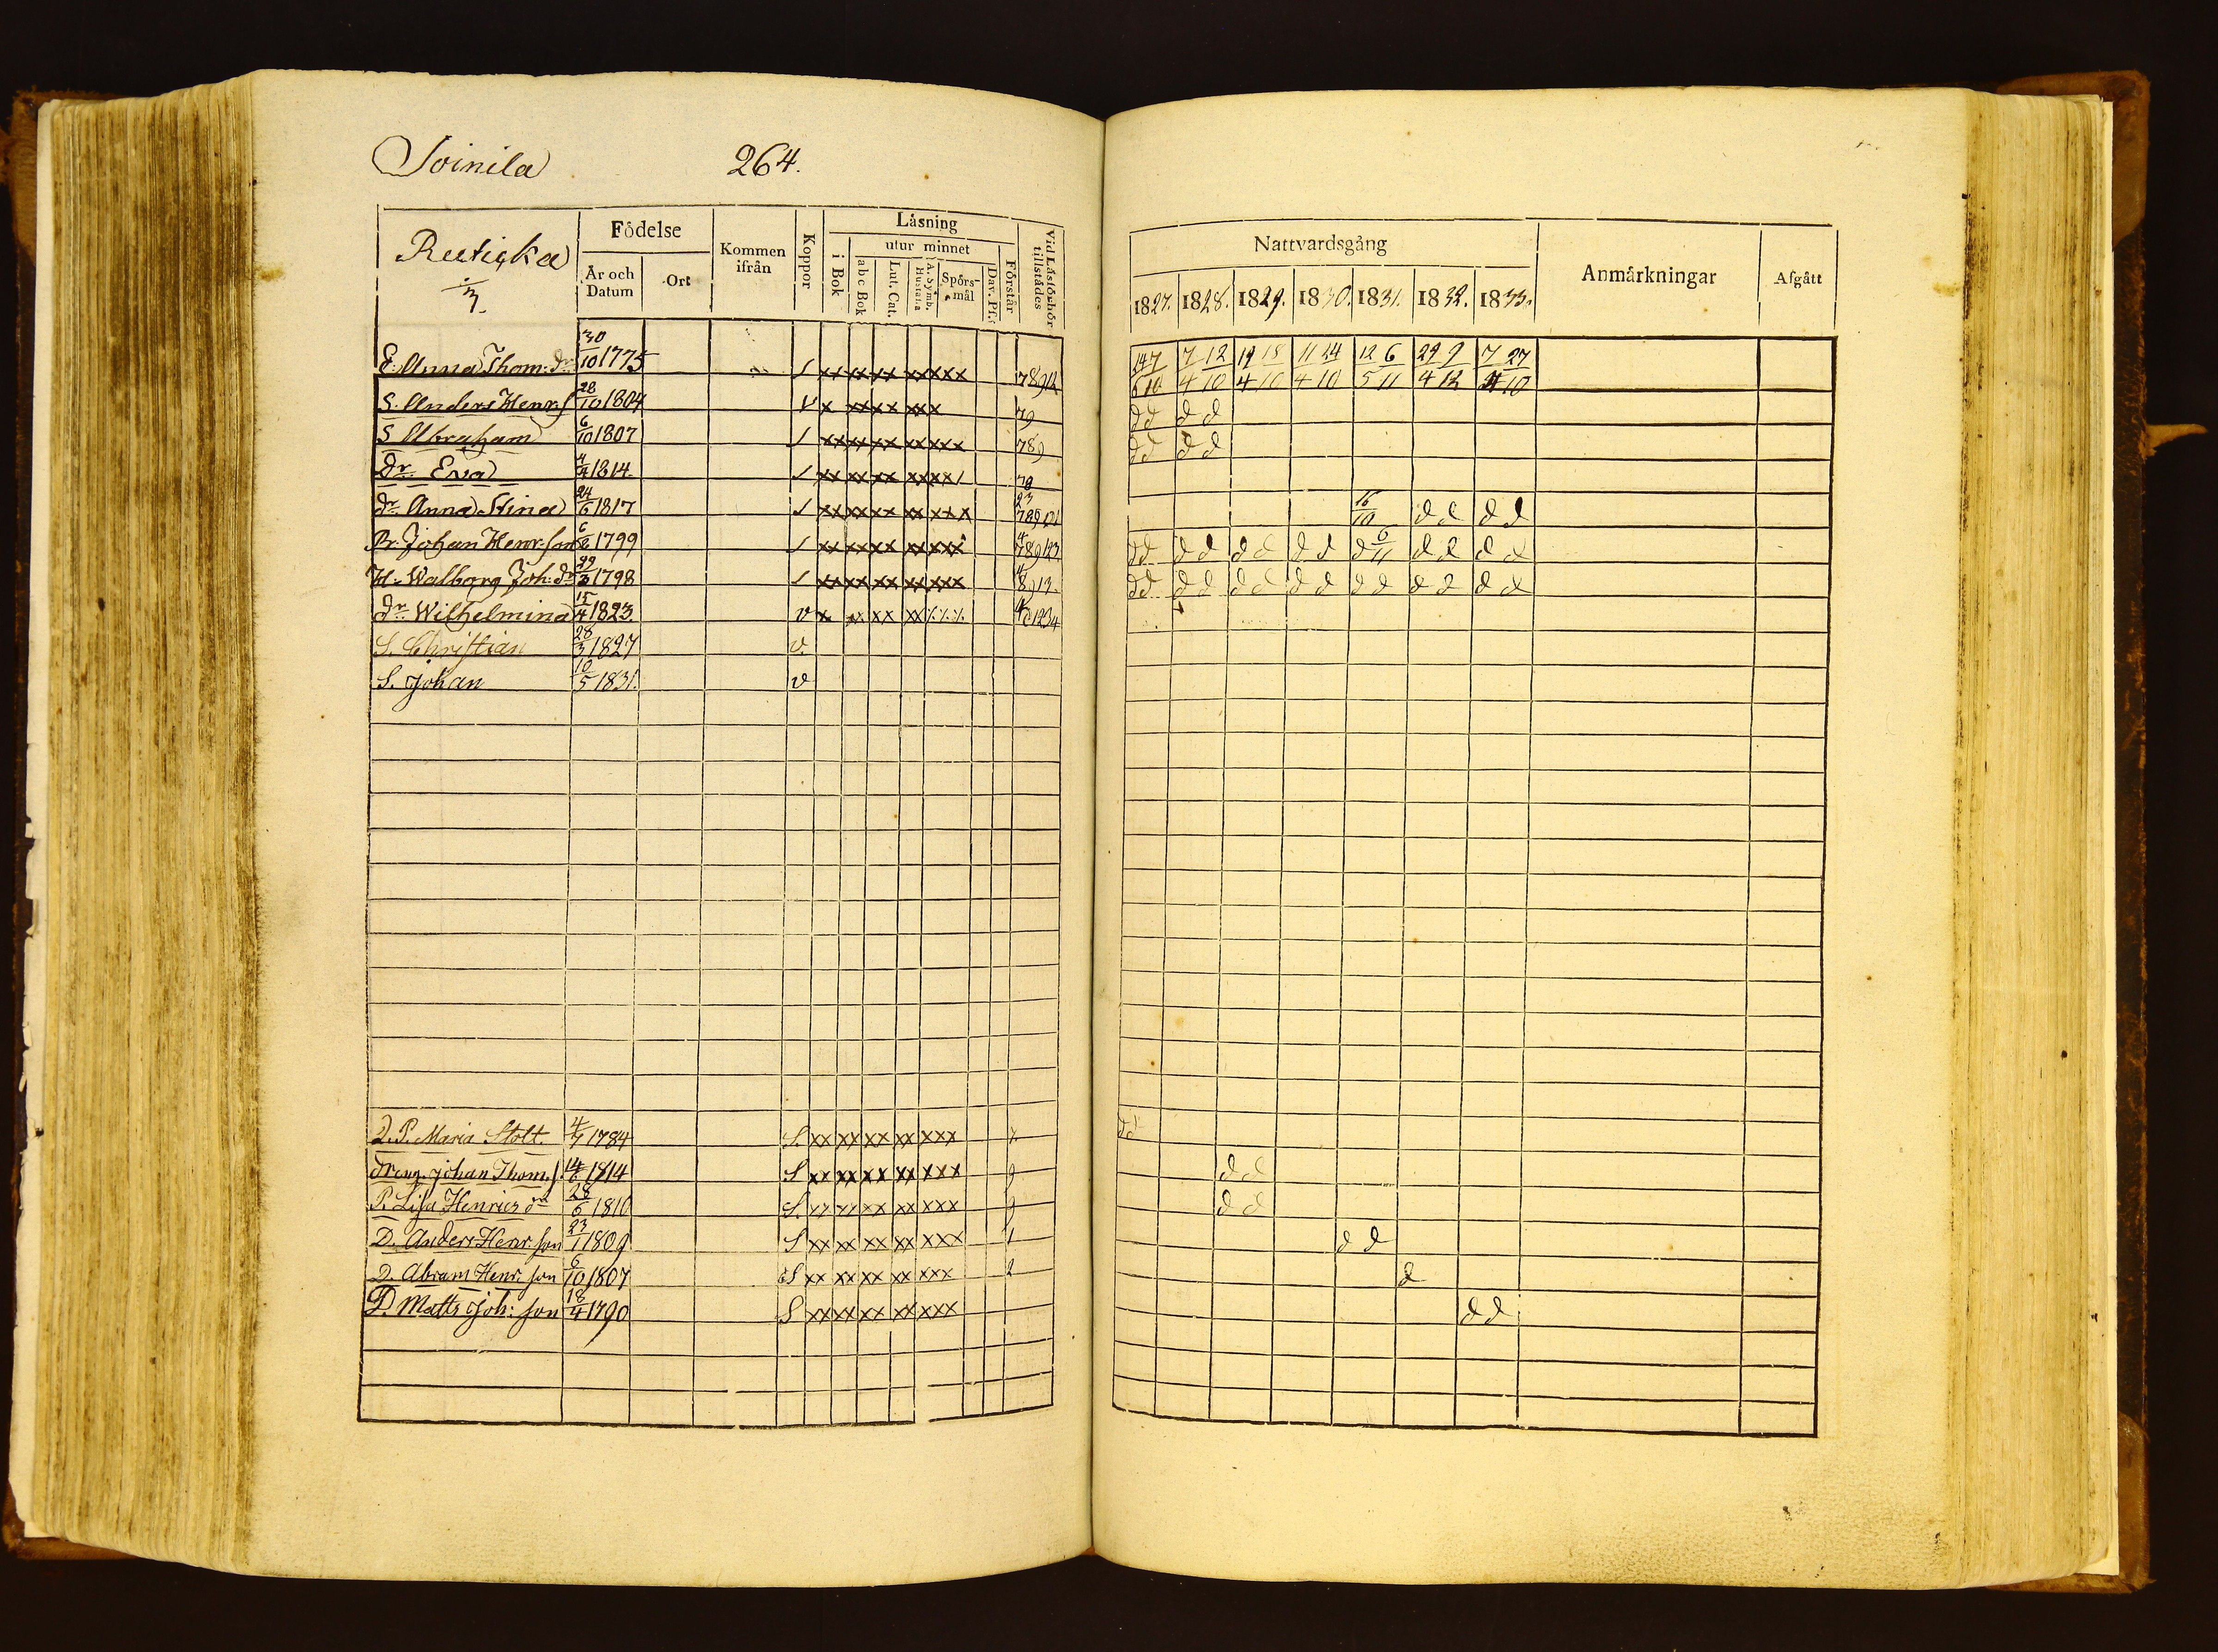 Soinila 264.
Födelse Kommen ifrån Koppor Läsning Förstår Vid Läsförhör tillstädes
År och Datum Ort i Bok utur minnet
a b c Bok Lut. Cat. A. Symb. Hustafla Spörsmål Dav. Ps.
3.
E. Anna Thom: dr 30/10 1775 / xx xx xx xx xxx 78912
S. Anders Henr. s 28/10 1804 V x xx xx xxx 79
S Abraham 6/10 1807 / xx xx xx xx xxx 789
dr Eva 4/4 1814 / xx xx xx xx xx/ 78
dr Anna Stina 24/6 1817 / xx xx xx xx xxx
Br. Johan Henr. son 6/6 1799 / xx xx xx xx xxx
H. Walborg Joh. dr 29/3 1798 / xx xx xx xx xxx
dr Wilhelmina 15/4 1823. v x xx xx
S. Christian 28/3 1827 v.
S. Johan 10/5 1831. v
D. P. Maria Stolt. 4/7 1784 S. xx xx xx xx xxx 7.
Dreng. Johan Thom. s. 14/6 1814 S xx xx xx xx xxx 9
P. Lisa Henrics dr 28/6 1810 S. xx xx xx xx xxx 9
D. Anders Henr. son 23/1 1809 S xx xx xx xx xxx 1
D. Abram Henr. son 6/10 1807 S xx xx xx xx xxx 2
D. Matts Joh: son 18/4 1790 S xx xx xx xx xxx
Nattvardsgång Anmärkningar Afgått
1827. 1828. 1829. 1830. 1831. 1832. 1833.
14/6 7/10 7/4 12/10 19/4 18/10 11/4 24/10 12/5 6/11 29/4 9/12 7/4 27/10
d d d d
d d d d
16/10 d d d d
d d d d d d d d d 6/11 d d d d
d d d d d d d d d d d d d d
d d
d d
d d
d d
d
d d